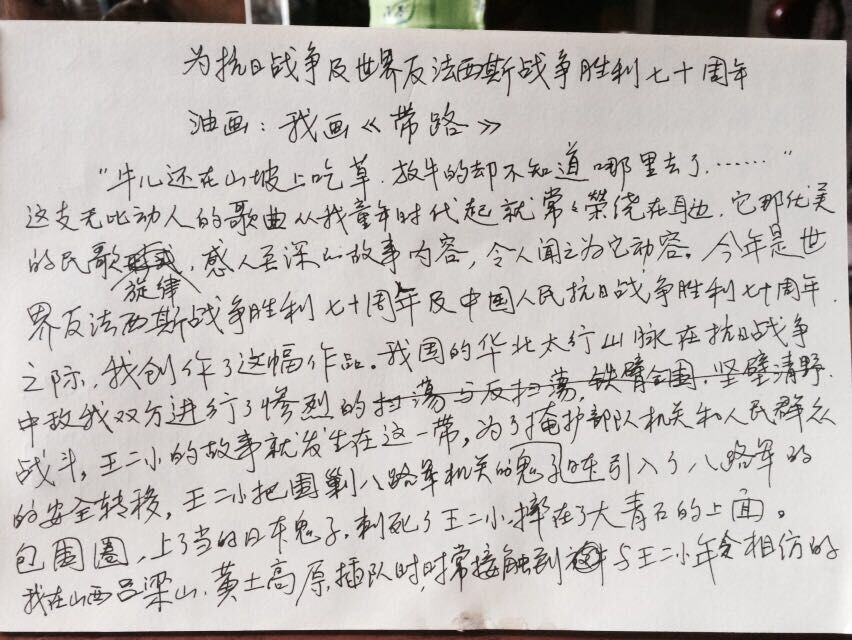 为抗日战争及世界反法西斯战争胜利七十周年
油画：我画《带路》
"牛儿还在山坡上吃草，放牛的却不知道哪里去了……"
这支无比动人的歌曲从我童年时代起就常常萦绕在耳边，它那优美
的民歌旋律，感人至深的故事内容，令人闻之为它动容。今年是世
界反法西斯战争胜利七十周年及中国人民抗日战争胜利七十周年
之际，我创作了这幅作品。我国的华北太行山脉在抗日战争
中敌我双方进行了惨烈的扫荡与反扫荡，铁臂合围，坚壁清野
战斗，王二小的故事就发生在这一带，为了掩护部队机关和人民群众
的安全转移，王二小把围剿八路军机关的鬼子引入了八路军的
包围圈，上了当的日本鬼子，刺死了王二小，摔在了大青石的上面。
我在山西吕梁山，黄土高原，插队时，时常接触到与王二小年令相仿的